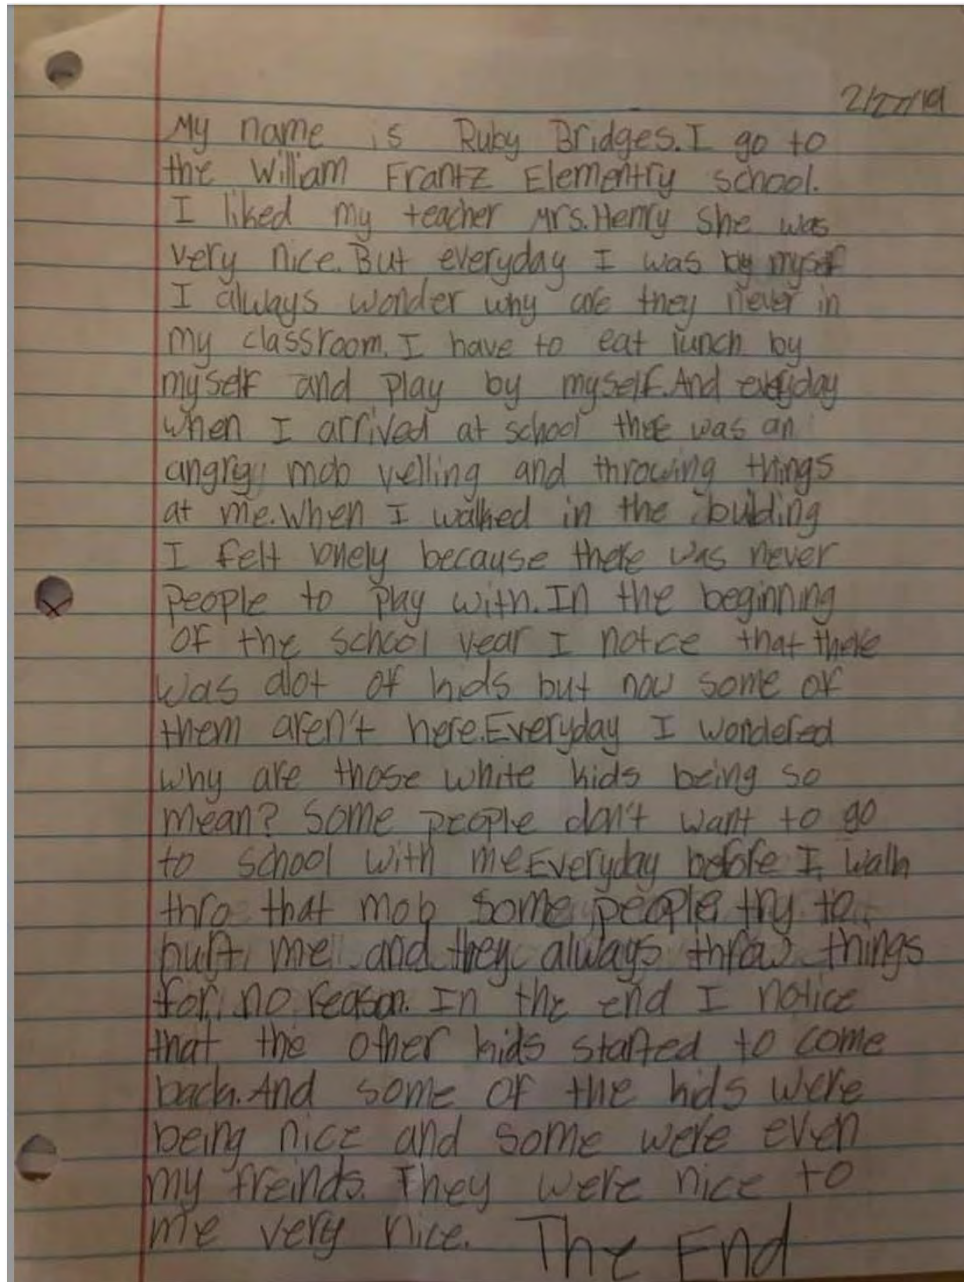 2/27/19
My name is Ruby Bridges. I go to
the William Frantz Elementry school.
I liked my teacher Mrs. Henry she was
very nice. But everyday I was by myself
I always wonder why are they never in
my classroom. I have to eat lunch by
myself and play by myself. And everyday
when I arrived at school there was an
angry mob yelling and throwing things
at me. When I walked in the building
I felt lonely because there was never
people to play with. In the beginning
of the school year I notice that there
was alot of kids but now some of
them aren't here. Everyday I wondered
why are those white kids being so
mean? Some people don't want to go
to school with me Everyday before I walk
thro that mob some people try to
hurt me and they always throw things
for no reason. In the end I notice
that the other kids started to come
back. And some of the kids were
being nice and some were even
my freinds. They were nice to
me very nice. The End